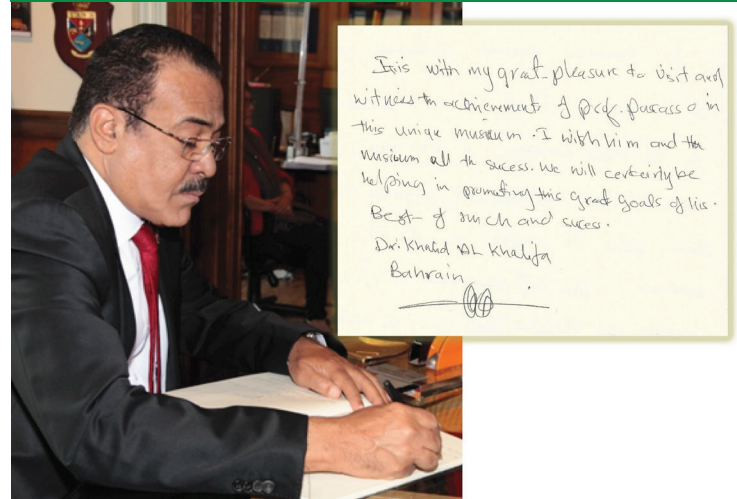 It is with my great pleasure to visit and
witness the achievements of prof. Purcasso in
this unique museum. I wish him and the
musium all the sucess. We will certeirly be
helping in promoting this great goals of his.
Best of luch and sucess.
Dr. Khalid AL Khalifa
Bahrain